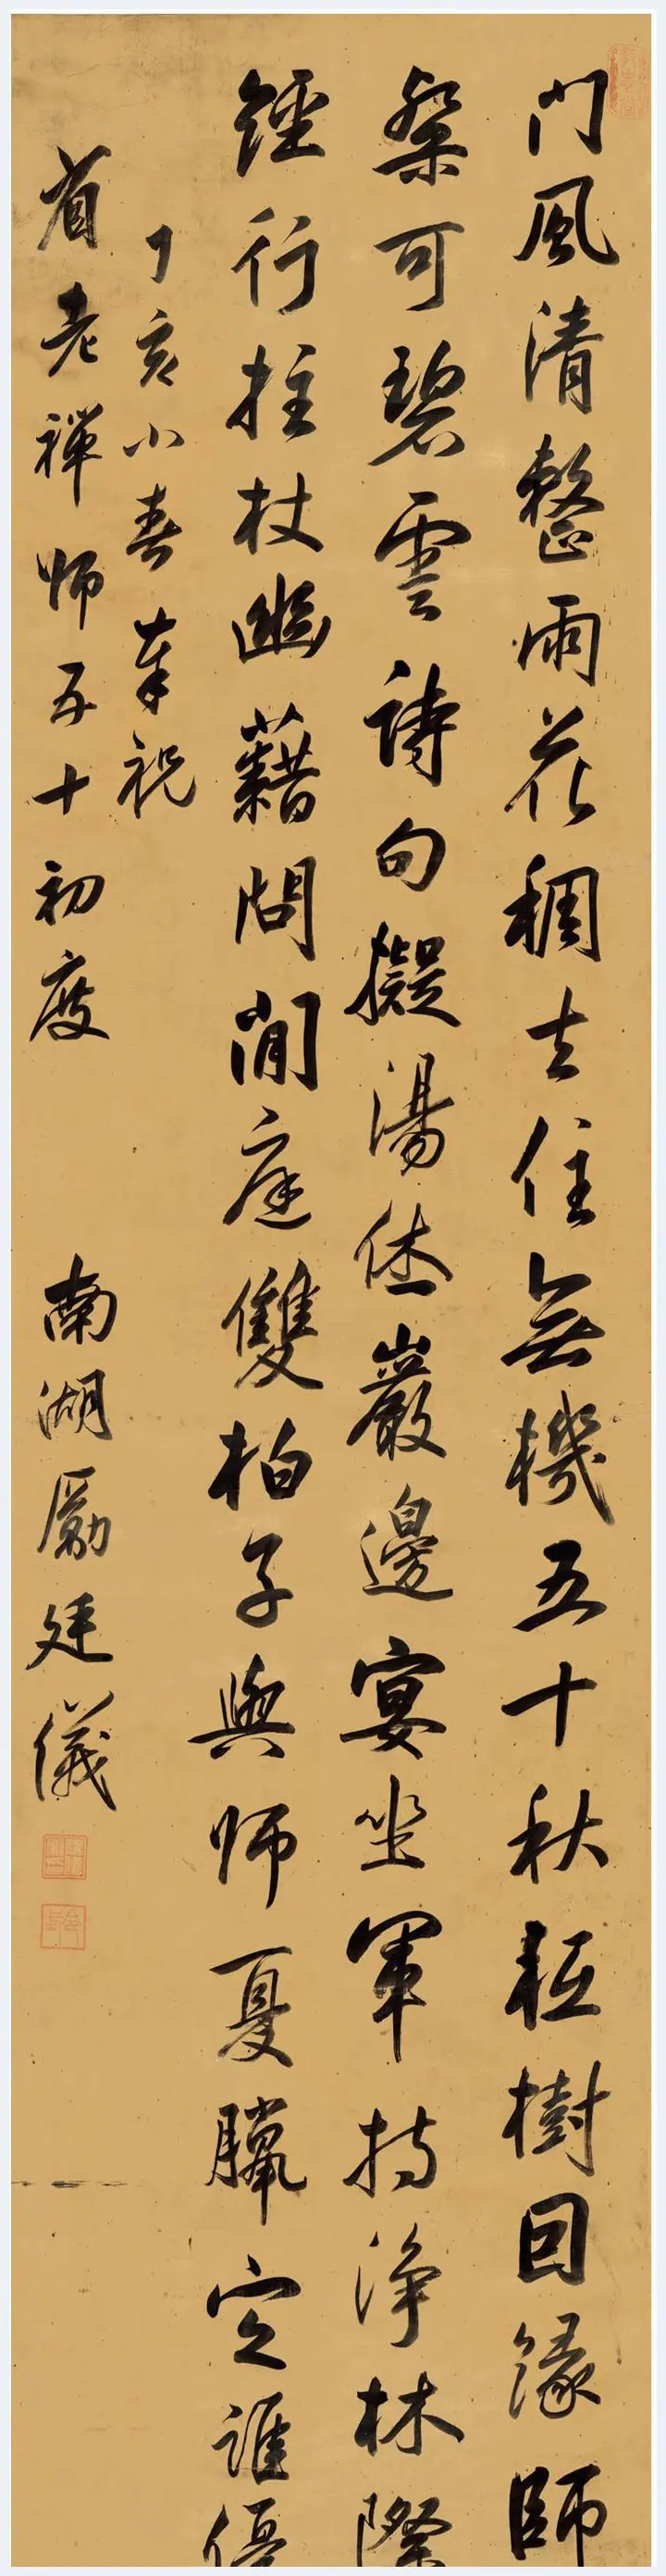 門風清整雨花稠去住無機五十秋祗樹因緣師
粲可碧雲詩句擬湯休巖邊宴坐軍持淨林際
經行拄杖幽藉問閒庭雙柏子與師夏臘定誰優
丁亥小春奉祝
省老禪師五十初度 南湖勵廷儀